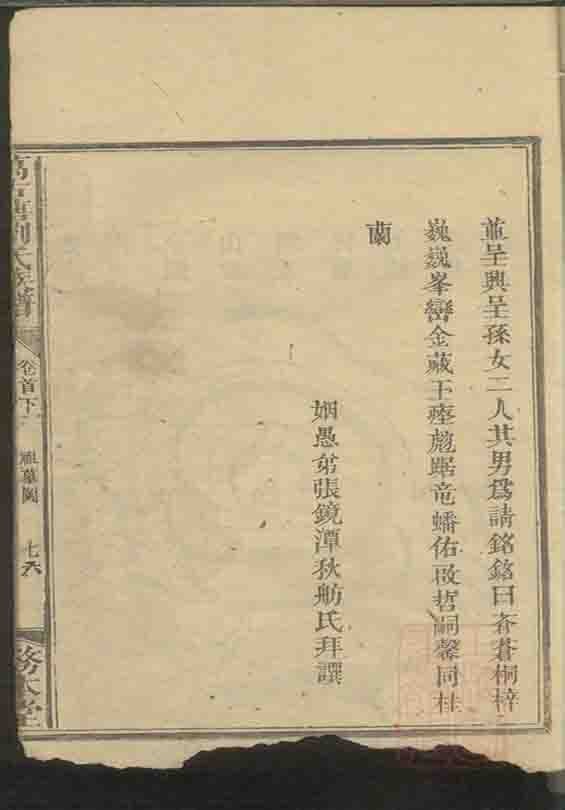 堇呈興呈孫女二人其男爲請銘銘曰蒼蒼桐梓
巍巍峯巒金藏玉瘞彪踞竜蟠佑啟哲嗣馨同桂
蘭
姻愚弟張鏡潭秋舫氏拜譔
劉氏族譜
卷首下
祖墓図
七六
務本堂